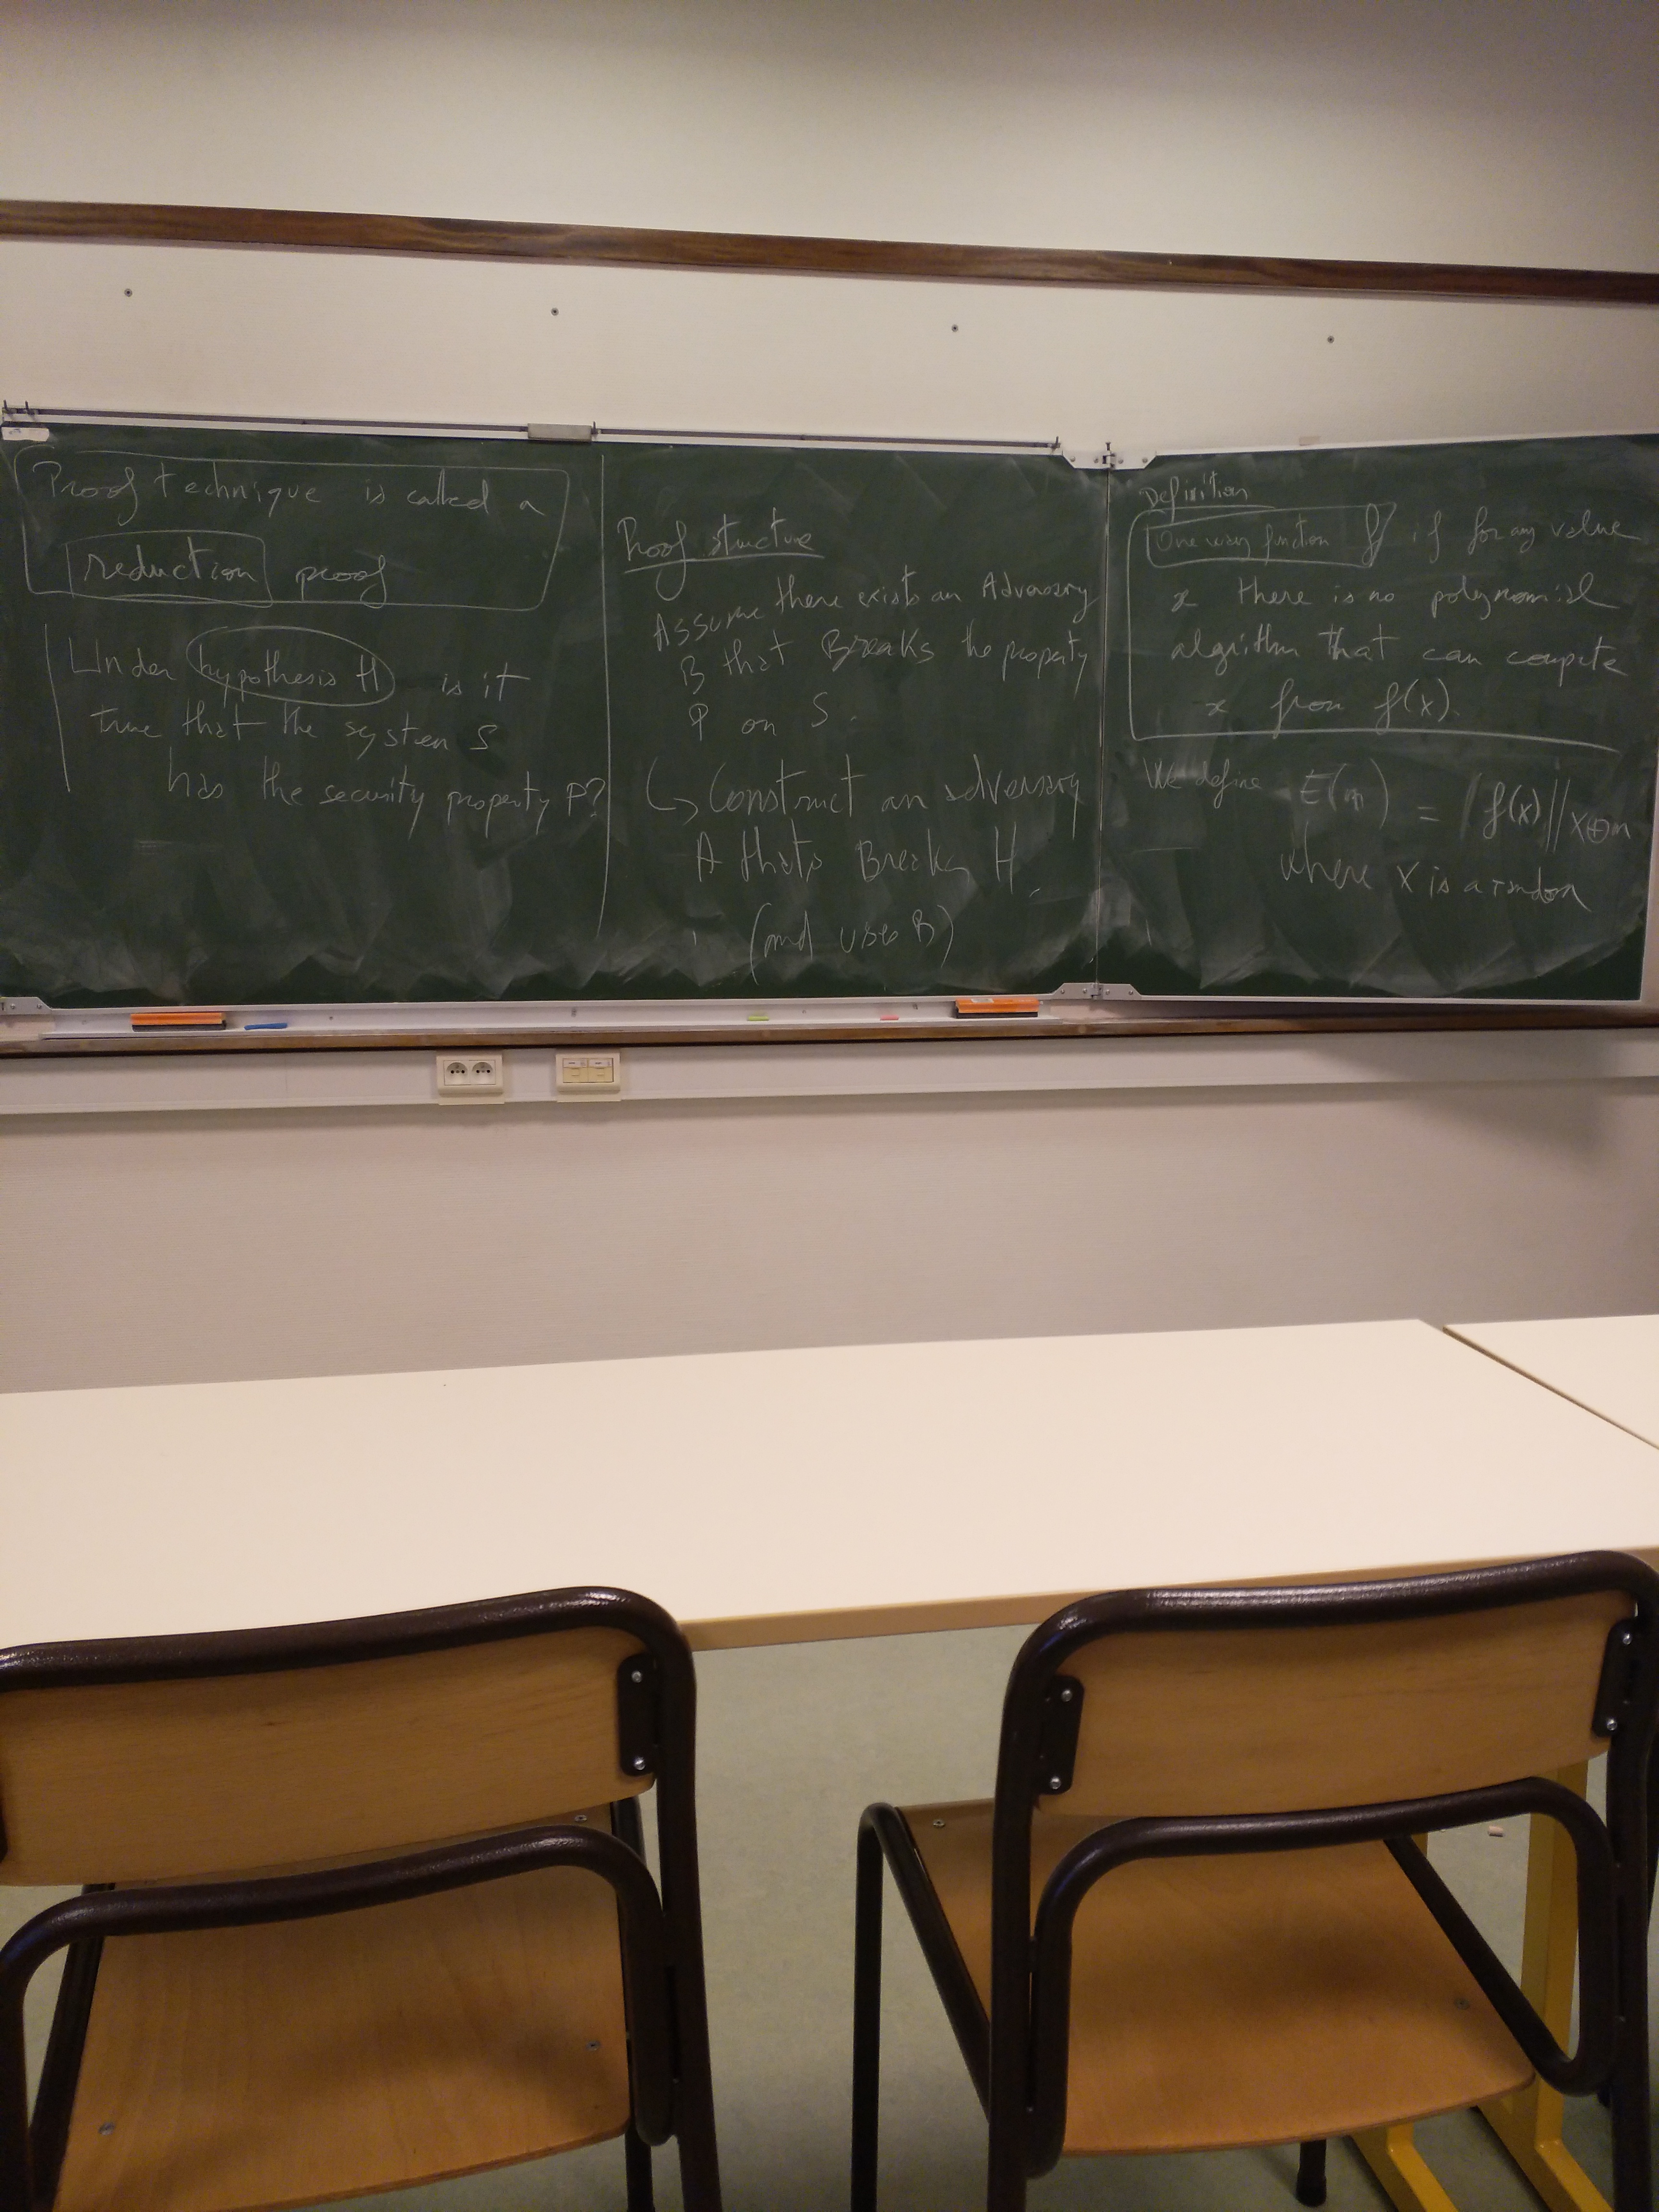 Proof technique is called a
reduction proof
Under hypothesis H is it
true that the system S
has the security property P?
Proof structure
Assume there exists an Adversary
B that Breaks the property
P on S.
↳ Construct an adversary
A thats Breaks H.
(and uses B)
Definition
One way function f if for any value
x there is no polynomial
algorithm that can compute
x from f(x).
We define E(m) = f(x) || x⊕m
where x is a random